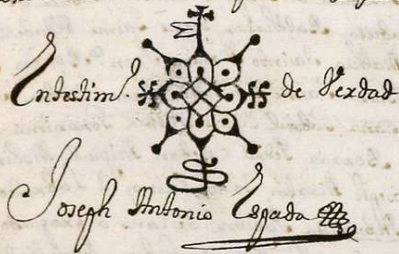 En testim.º de Verdad
Joseph Antonio Espada